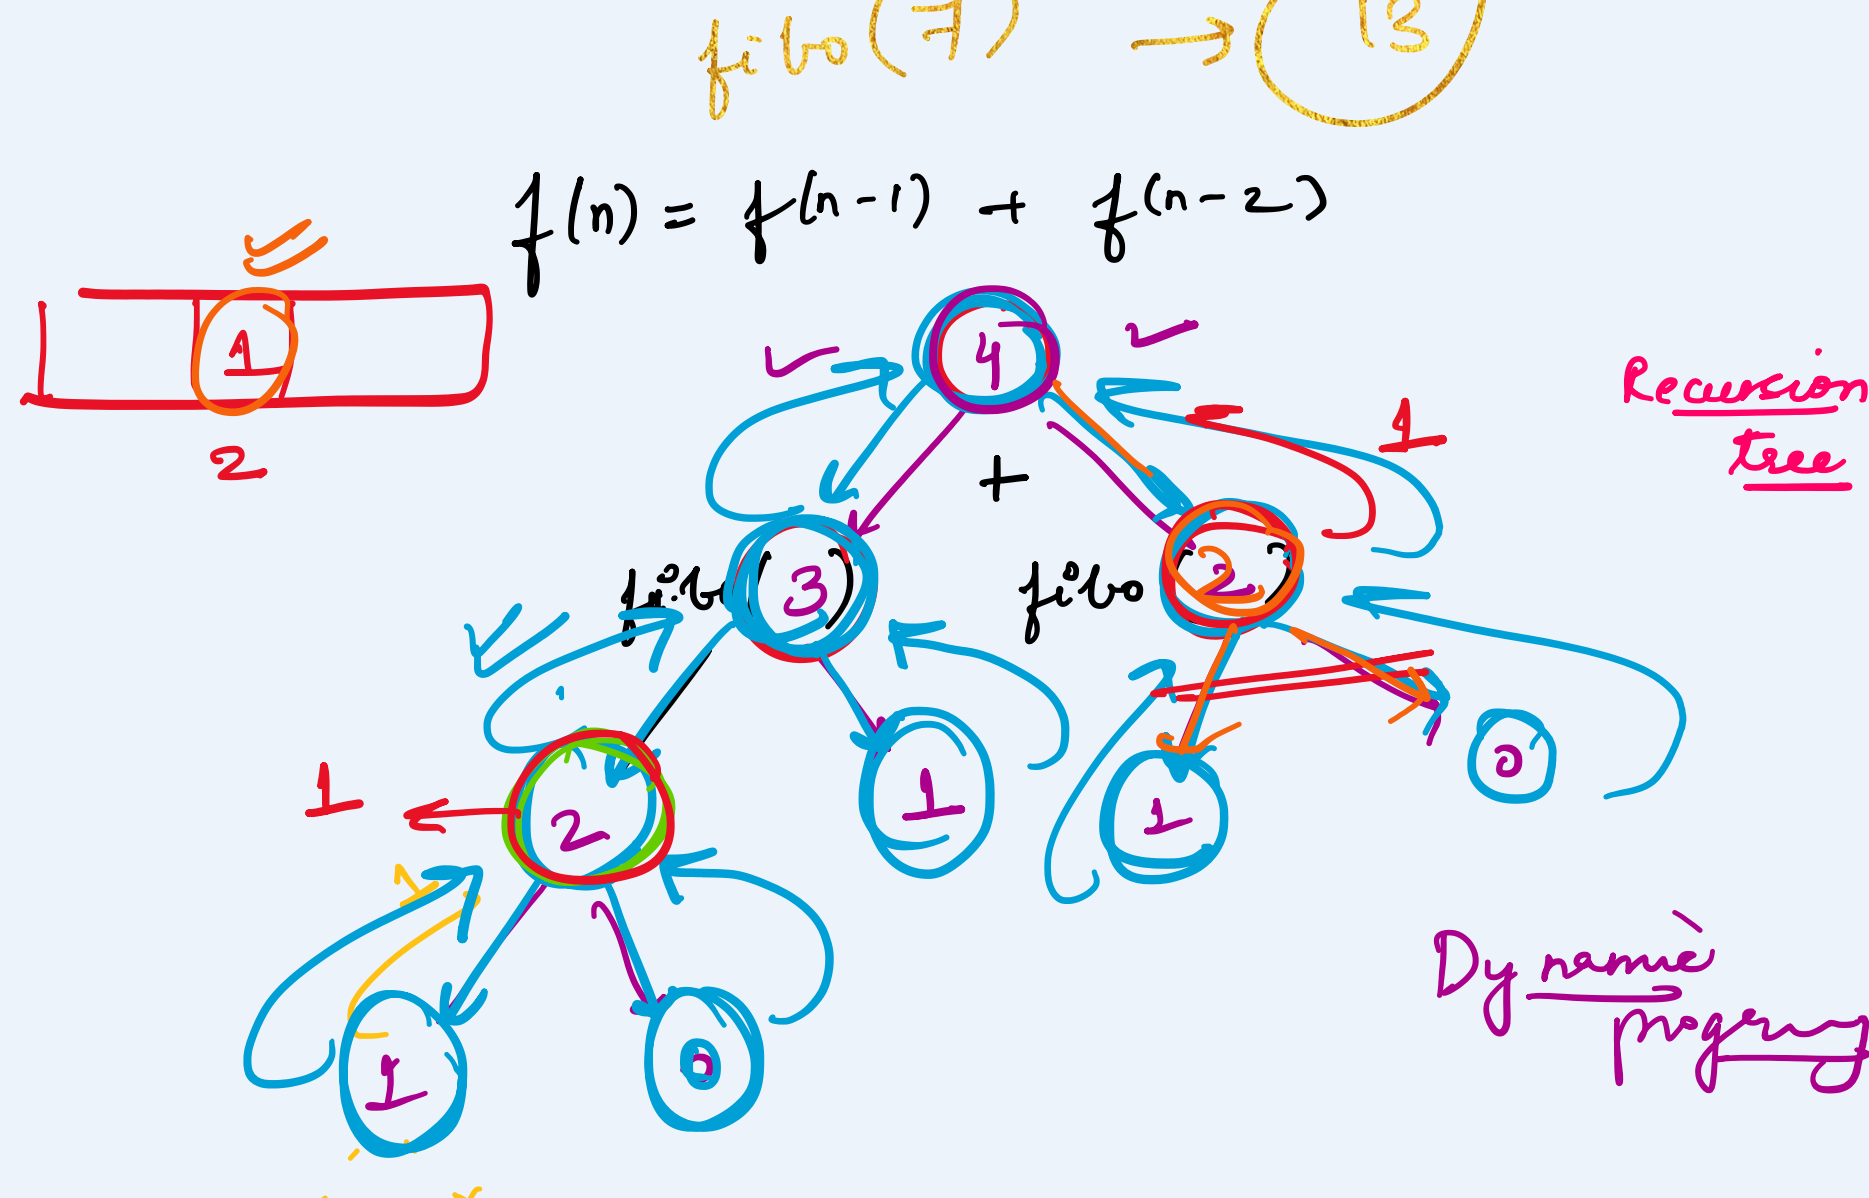 fibo(7) → 13
f(n) = f(n-1) + f(n-2)
1
2
4
1
Recursion
tree
+
fibo(3)
fibo(2)
1
2
1
1
0
1
0
Dynamic